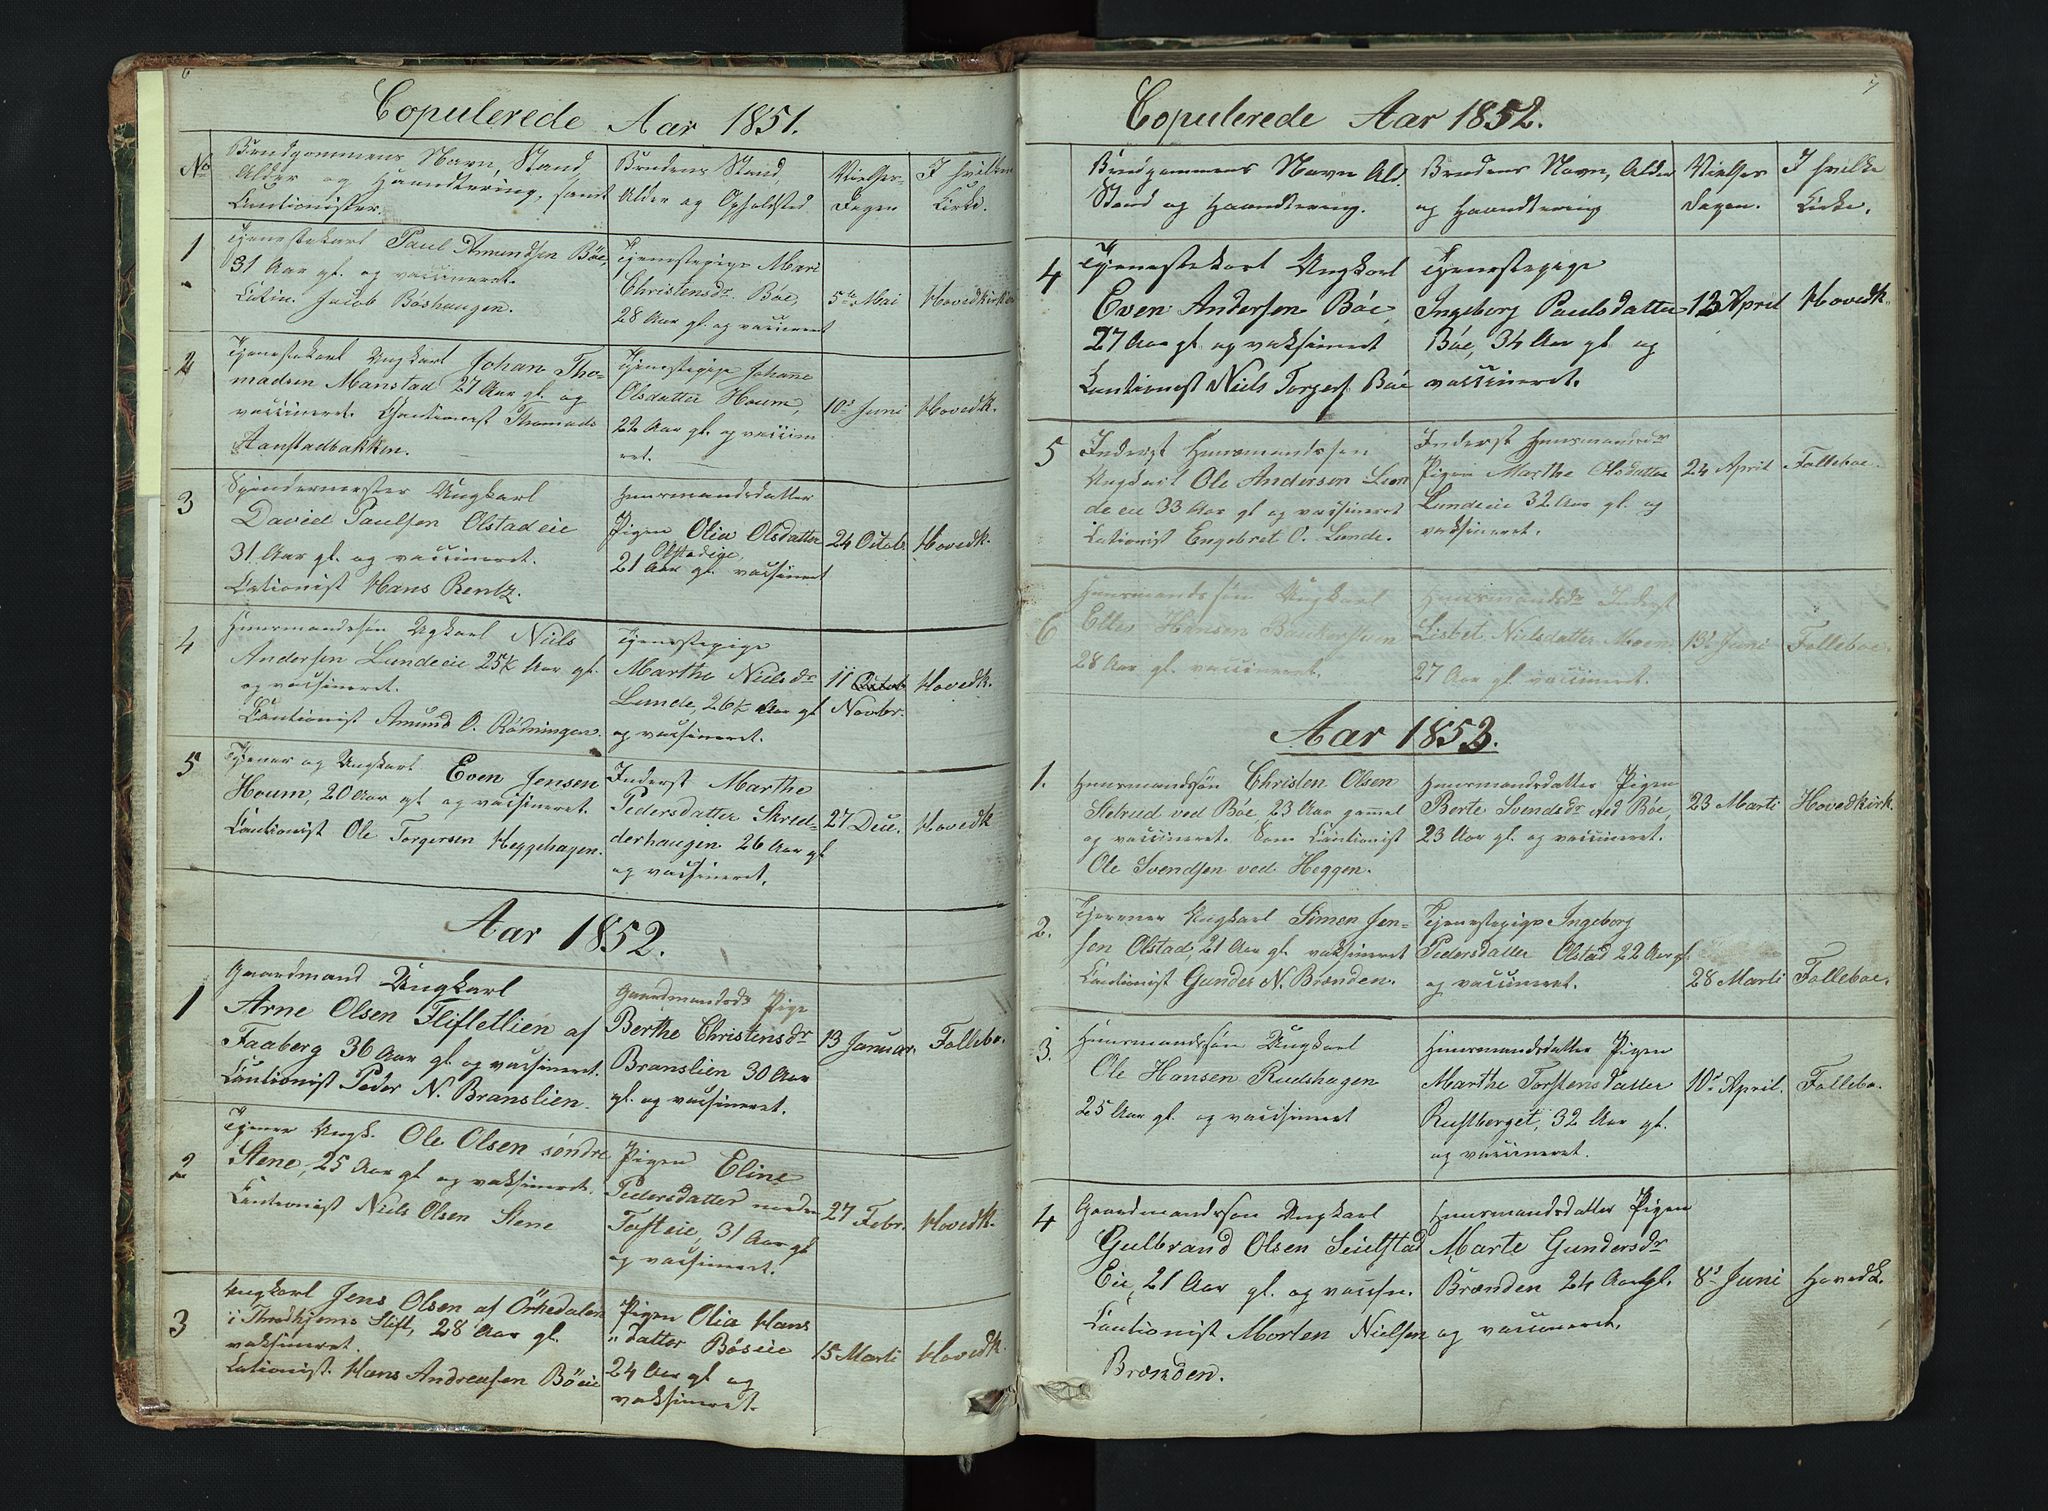 6
Copulerede Aar 1851.
No
Brudgommens Navn, Stand,
Alder og Haandtering, samt
Cautionister.
Brudens Stand,
Alder og Opholdsted
Vielses-
Dagen
I hvilken
Kirke.
1
Tjenestekarl Paul Amundsen Böe,
31 Aar gl. og vaccineret.
Jacob Böshaugen.
Tjenestepige Mari
Christensdr. Böe,
28 Aar gl. og vaccineret
5te Mai
Hovedkirken
2
Tjenestekarl Ungkarl Johan Tho-
madsen Manstad 27 Aar gl. og
vaccineret. Cautionist Thomads
Aanstadbakken.
Tjenestepige Johane
Olsdatter Houm,
22 Aar gl. og vaccine
ret.
10de Juni
Hovedk.
3
Ungkarl
David Paulsen Olstadeie
31 Aar gl. og vaccineret.
Cationist Hans Rentz.
Huusmandsdatter
Pigen Olia Olsdatter
Olstadeie
21 Aar gl. vaccineret
24 Octob.
Hovedk.
4
Huusmandssön Ugkarl Niels
Andersen Lundeeie 25½ Aar gl.
og vaccineret.
Cautionist Amund O. Rödningen.
Tjenestepige
Marthe Nielsdr
Lunde, 26½ Aar gl
og vaccineret.
11 Octob
Novbr.
Hovedk.
5
Tjener og Ungkarl Even Jensen
Houm, 20 Aar gl. og vaccineret.
Cautionist Ole Torgersen Heggehagen.
Inderst Marthe
Pedersdatter Skred-
derhaugen 26 Aar gl.
og vaccineret.
27 Dec.
Hovedk
Aar 1852.
1
Gaardmand Ungkarl
Arne Olsen Flifletlien af
Faaberg 36 Aar gl. og vaccineret.
Cautionist Peder N. Branslien.
Gaardmandsdr Pige
Berthe Christensdr
Branslien 30 Aar
gl. og vaccineret.
13 Januar.
Follebo.
2
Tjener Ungk. Ole Olsen söndre
Stene, 25 Aar gl og vaksineret.
Cautionist Niels Olsen Stene
Pigen Eline
Pedersdatter nordre
Tofteie, 31 Aar gl
og vaccineret.
27 Febr.
Hovedk.
3
Ungkarl Jens Olsen af Örkedalen
i Throdhjems Stift, 28 Aar gl.
vaksineret.
Cationist. Hans Andreasen Böeie
Pigen Olia Hans
"datter Böseie
24 Aar gl og
vaksineret.
15 Marti
Hovedk.
7
Copulerede Aar 1852.
Brudgommens Navn Ald.
Stand og Haandtering.
Brudens Navn, Alder
og Haandtering
Vielses
Dagen.
I hvilke
Kirke.
4
Tjenestekarl Ungkarl
Even Andersen Böe,
27 Aar gl og vaksineret
Cautionist Niels Torgers. Böe
Tjenestepige
Ingeborg Paulsdatter
Böe, 34 Aar gl og
vaccineret.
13 April
Hovedk.
5
Inderst Huusmandssön
Ungkarl Ole Andersen Lun
deeie 33 Aar gl og vaccineret
Cationist Engebret O. Lunde.
Inderst Huusmandsdr
Pigen Marthe Olsdatter
Lundeeie 32 Aar gl. og
vaksineret.
24 April
Folleboe.
6
Huusmandssön Ungkarl
Hansen
28 Aar gl. vaccineret.
Huusmandsdr Inderst
Lisbet Nielsdatter Moen
27 Aar gl. vaccineret.
13de Juni
Folleboe.
Aar 1853.
1.
Huusmandsön Christen Olsen
Stetrud ved Böe, 23 Aar gamel
og vaccineret. Som Cautionist
Ole Svendsen ved Heggen.
Huusmandsdatter Pigen
Berte Svendsdr ved Böe,
23 Aar gl. og vaccineret.
23 Marti
Hovedkirk.
2.
Tjener Ungkarl Simen Jen-
sen Olstad, 21 Aar gl. vaksineret
Cautionist Gunder N. Brænden.
Tjenestepige Ingeborg
Pedersdatter Olstad 22 Aar gl.
og vaccineret.
28 Marti
Folleboe.
3.
Huusmandssön Ungkarl
Ole Hansen Rudshagen
25 Aar gl. og vaccineret
Huusmandsdatter Pigen
Marthe Torstensdatter
Rustberget, 32 Aar gl.
og vaccineret.
10de April.
Follebo.
4
Gaardmandssön Ungkarl
Gulbrand Olsen Seielstad
Eie, 21 Aar gl. og vaccn.
Cautionist Morten Nielsen
Brænden.
Huusmandsdatter Pigen
Marte Gundersdr
Brænden 24 Aar gl.
og vaccineret.
8de Juni
Hovedk.